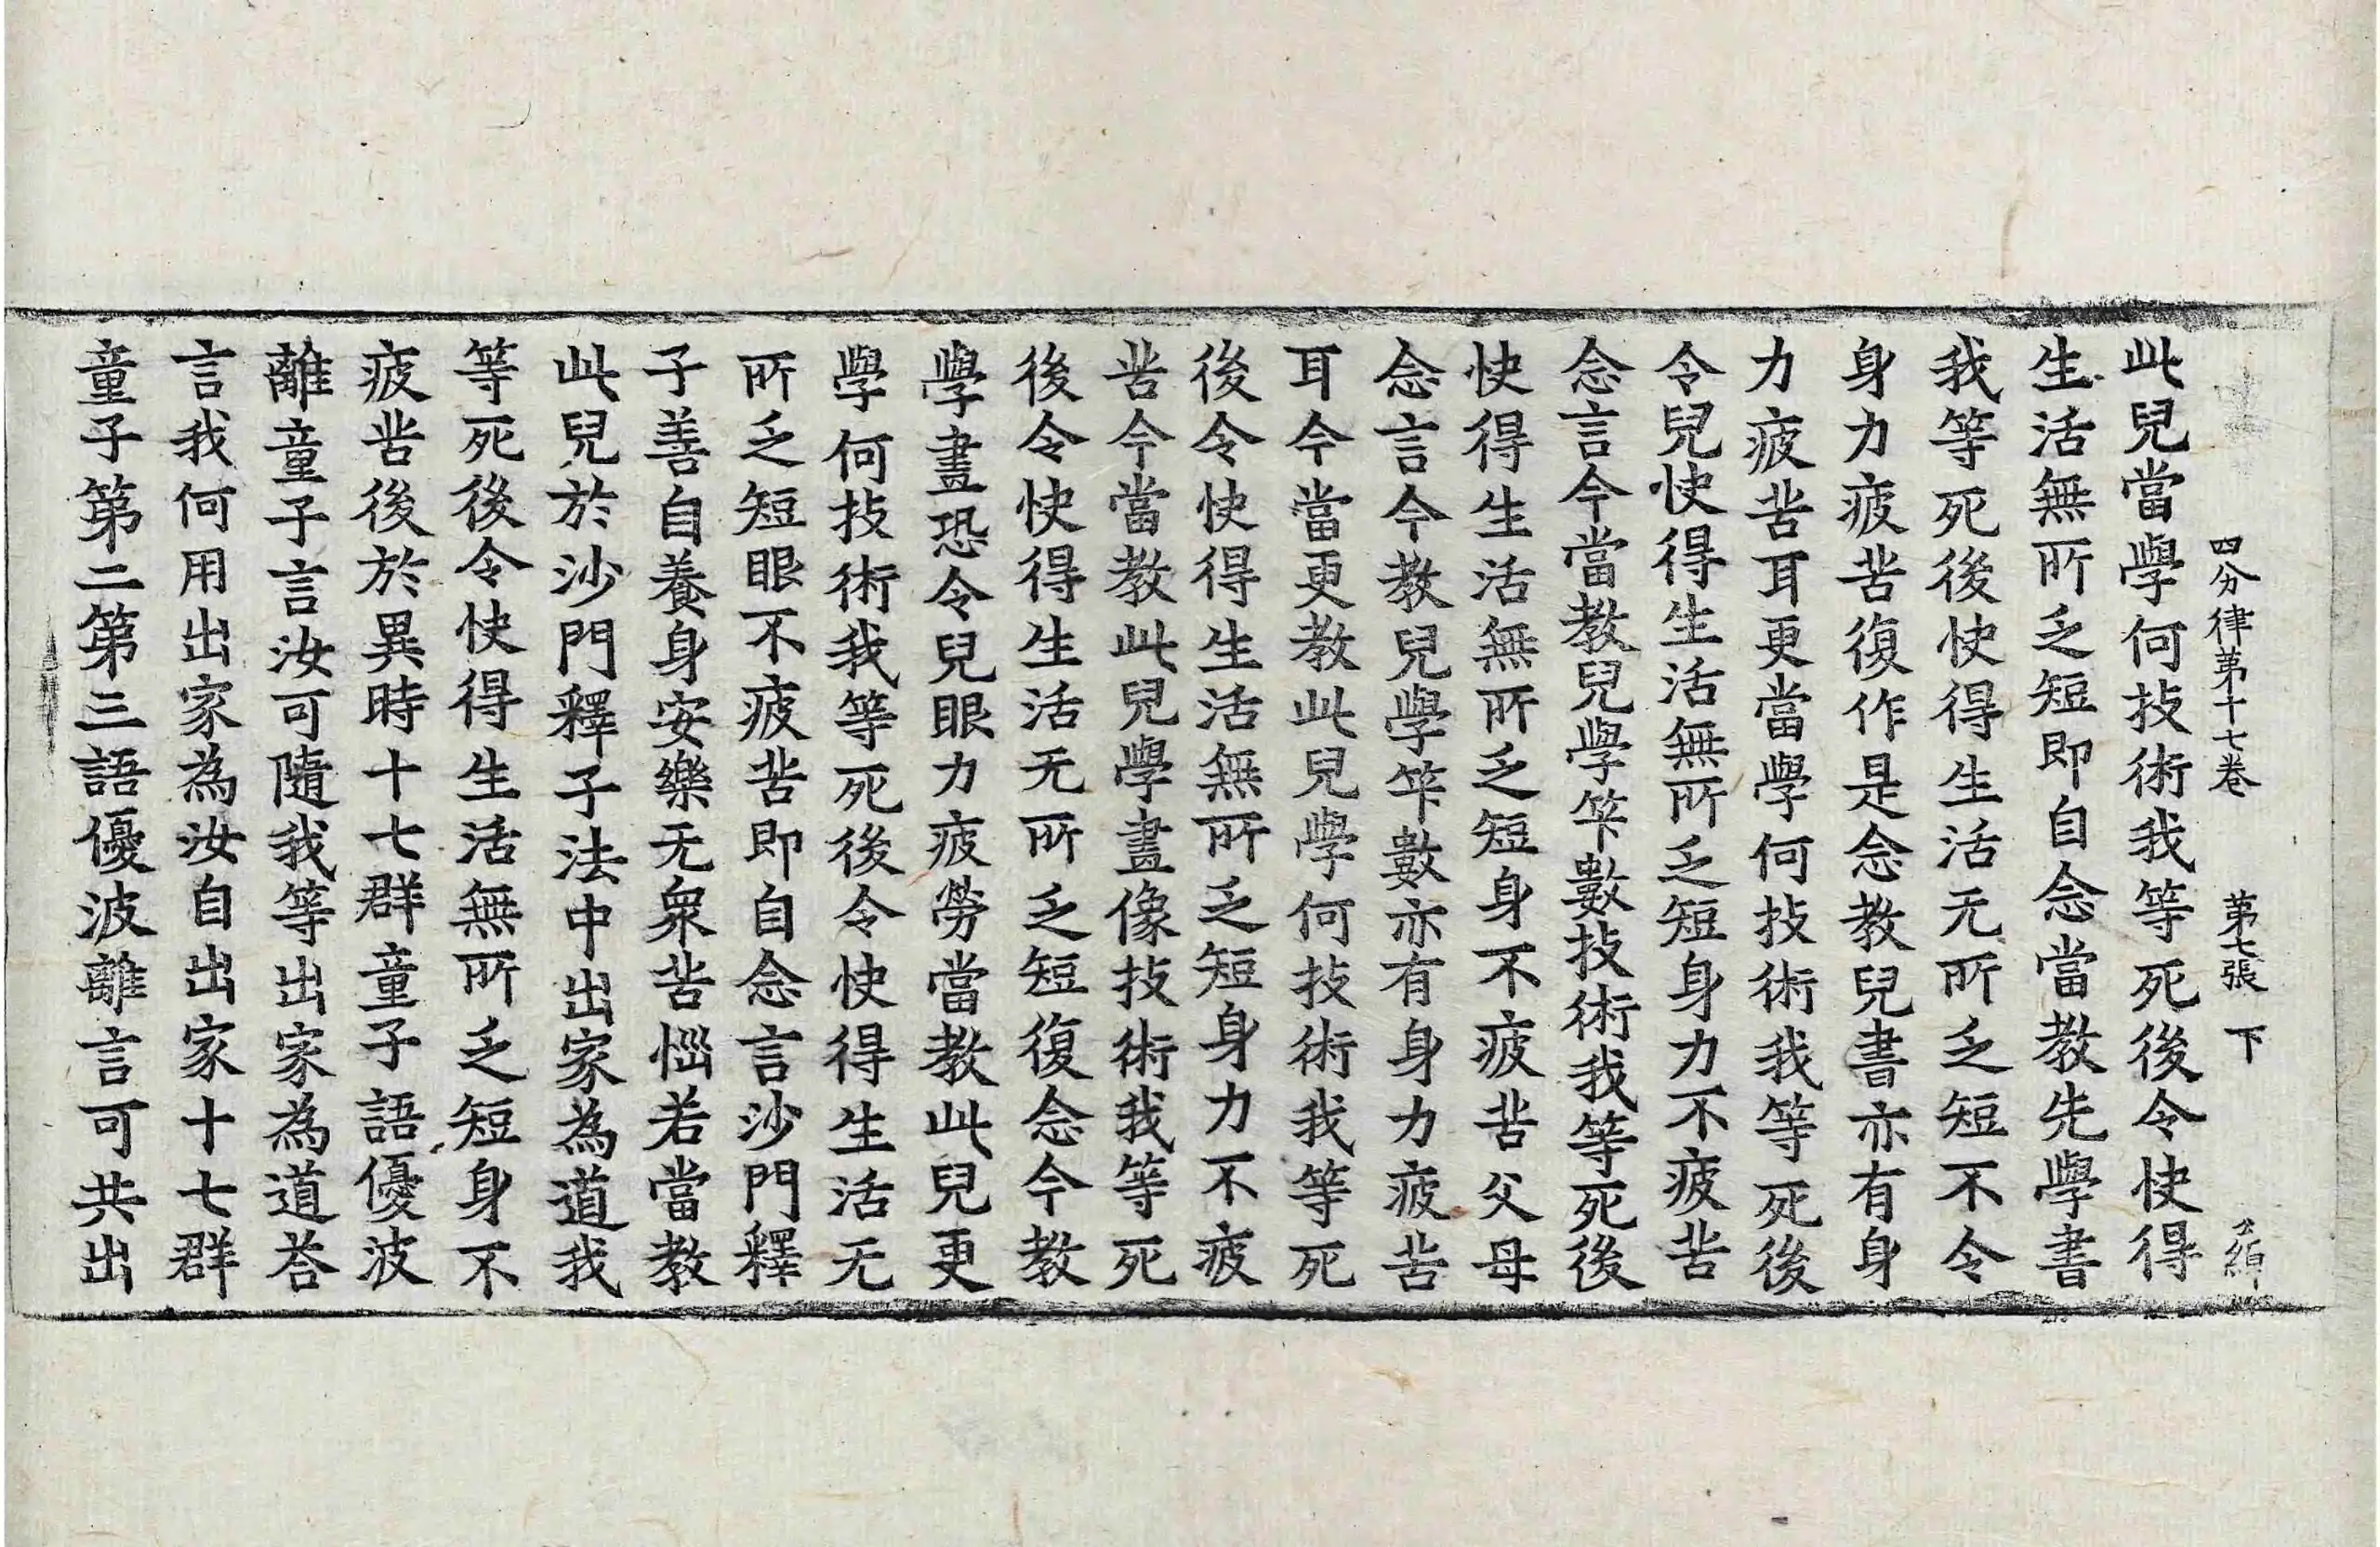 四分律第十七卷　第七張　下
此兒當學何技術我等死後令快得
生活無所乏短即自念當教先學書
我等死後快得生活无所乏短不令
身力疲苦復作是念教兒書亦有身
力疲苦耳更當學何技術我等死後
令兒快得生活無所乏短身力不疲苦
念言今當教兒學笇數技術我等死後
快得生活無所乏短身不疲苦父母
念言今教兒學笇數亦有身力疲苦
耳今當更教此兒學何技術我等死
後令快得生活無所乏短身力不疲
苦今當教此兒學畫像技術我等死
後令快得生活无所乏短復念今教
學畫恐令兒眼力疲勞當教此兒更
學何技術我等死後令快得生活无
所乏短眼不疲苦即自念言沙門釋
子善自養身安樂无衆苦惱若當教
此兒於沙門釋子法中出家為道我
等死後令快得生活無所乏短身不
疲苦後於異時十七群童子語優波
離童子言汝可隨我等出家為道荅
言我何用出家為汝自出家十七群
童子第二第三語優波離言可共出